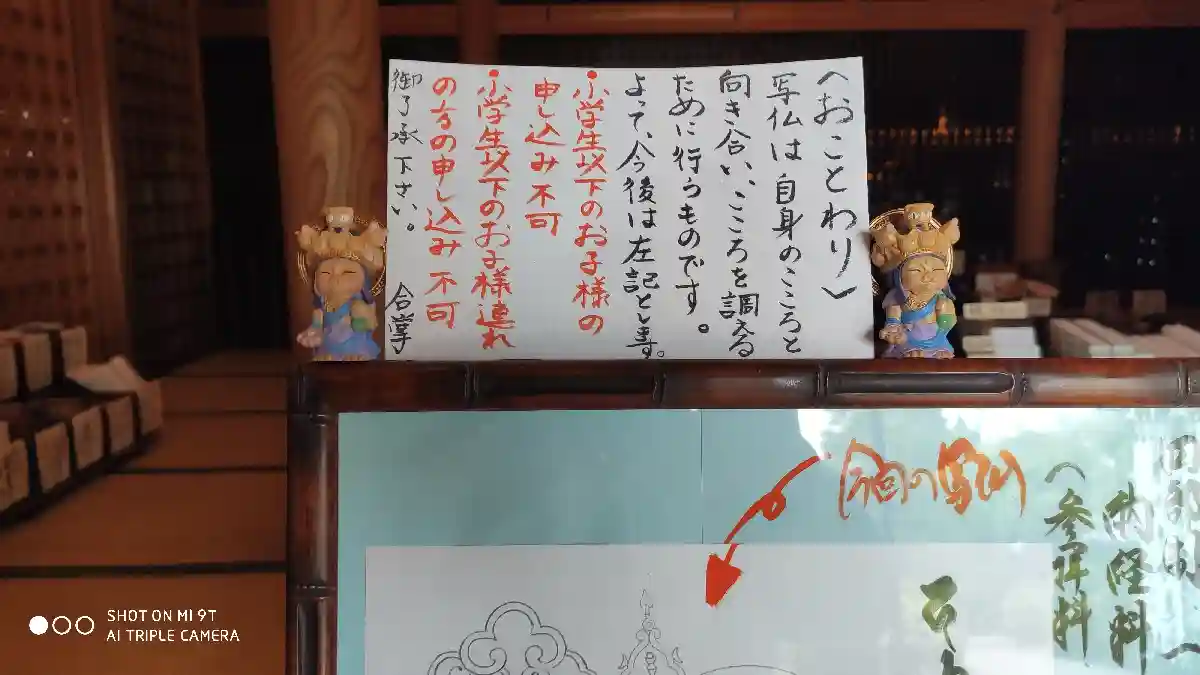 〈おことわり〉
写仏は自身のこころと
向き合い、こころを調える
ために行うものです。
よって、今後は左記とします。
・小学生以下のお子様の
申し込み不可
・小学生以下のお子様連れ
の方の申し込み不可
御了承下さい。 合掌
今回の写仏
納経料
〈参拝料
SHOT ON MI 9T
AI TRIPLE CAMERA